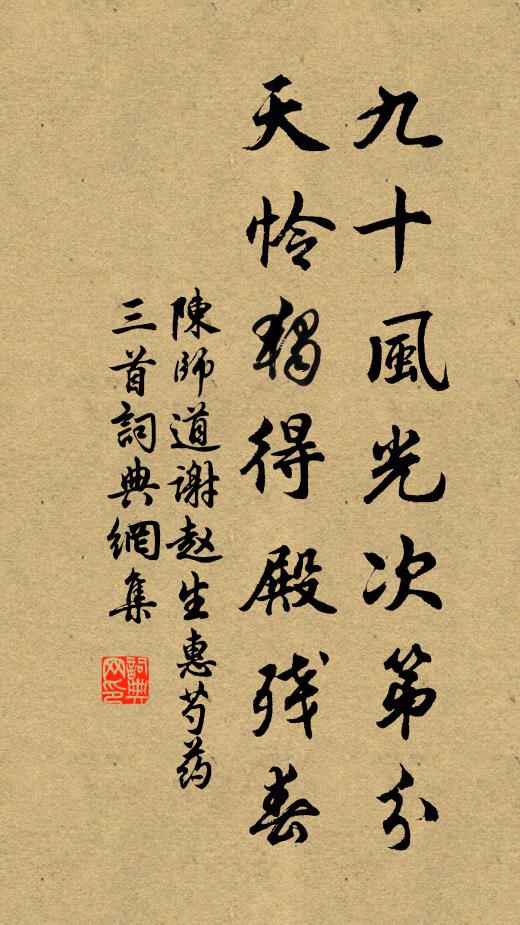 九十風光次第分
天怜獨得殿残春
陳師道谢赵生惠芍药
三首詞典網集
詞典网印